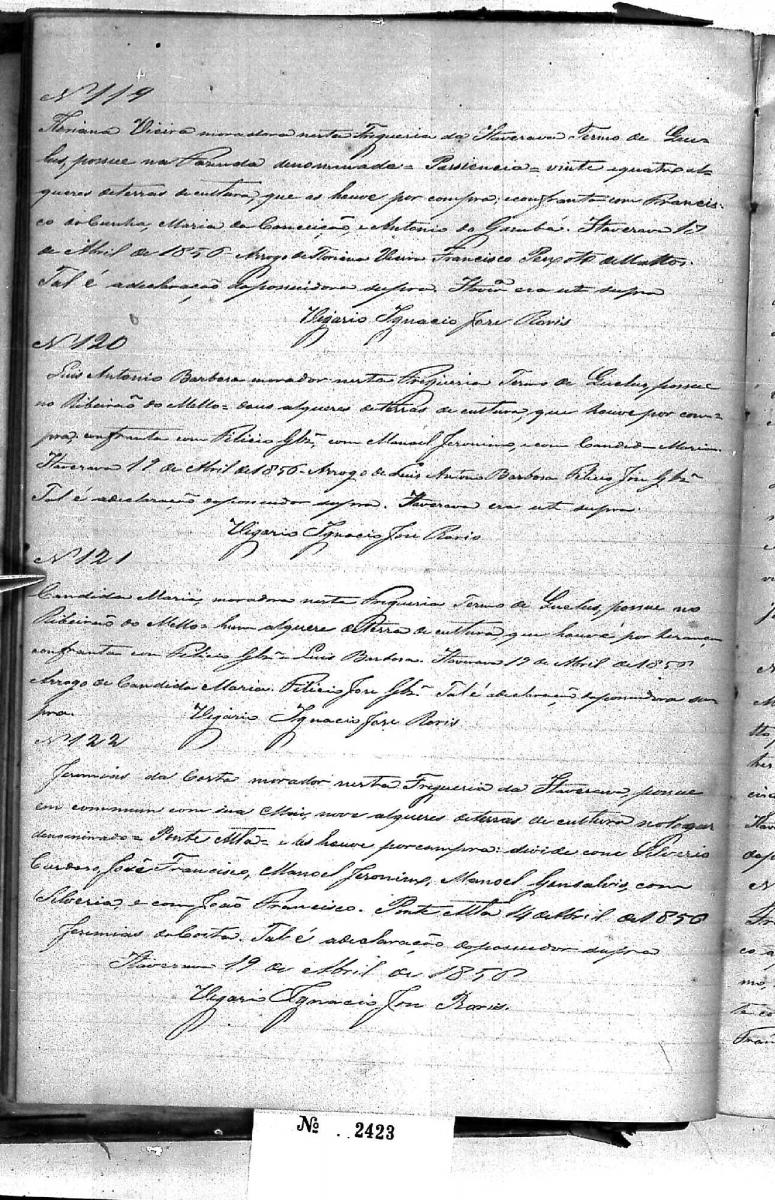 Nº 119
Floriana Vieira moradora nesta Freguesia da Itaverava Termo de Que-
lus, possue na Fazenda denominada = Passiencia = vinte e quatro al-
queres de terras de cultura, que as houve por compra; e confronta com Francis-
co da Cunha, Maria da Conceição, e Antonio do Gambá. Itaverava 17
de Abril de 1856 Arrogo de Floriana Vieira Francisco Peixoto de Mattos.
Tal é a declaração da possuidora supra. Itavª era ut supra
Vigario Ignacio José
Nº 120
Luis Antonio Barbosa morador nesta Freguesia Termo de Quelus, possue
no Ribeirão do Mello = dous alqueres de terras de cultura, que houve por com-
pra; confronta com Felicio com Manoel Jeronimo, e com Candida Maria.
Itaverava 19 de Abril de 1856 Arrogo de Luis Antonio Barbosa Felicio José
Tal é a declaração do possuidor supra. Itaverava era ut supra.
Vigario Ignacio José
Nº 121
Candida Maria, moradora nesta Freguesia Termo de Quelus, possue no
Ribeirão do Mello = hum alquere de terra de cultura, que houve por herança,
confronta com Felicio e Luis Barbosa. Itaverava 19 de Abril de 1856
Arrogo de Candida Maria. Felicio José Tal é a declaração da possuidora su-
pra. Vigario Ignacio José
Nº 122
Jeremias da Costa morador nesta Freguesia da Itaverava, possue
em commum com sua Mai, nove alqueres de terras de cultura no lugar
denominado = Ponte Alta = e les houve por compra: divide com Silverio
Cordero, José Francisco, Manoel Jeronimo, Manoel Gonsalvis, com
Silveria, e com João Francisco. Ponte Alta 14 de Abril de 1856
Jeremias da Costa. Tal é a declaração do possuidor supra
Itaverava 19 de Abril de 1856
Vigario Ignacio José
Nº 2423